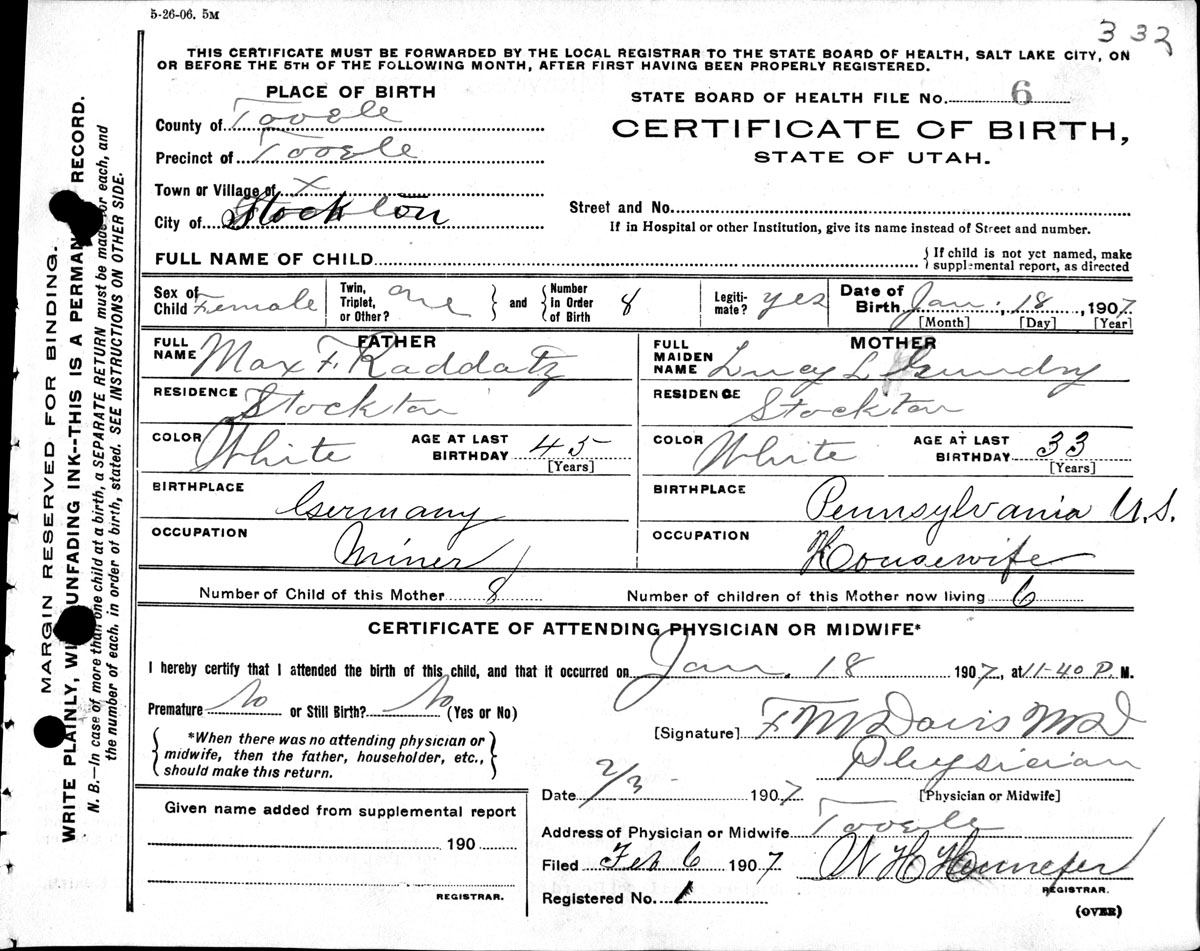 5-26-06. 5M
332
THIS CERTIFICATE MUST BE FORWARDED BY THE LOCAL REGISTRAR TO THE STATE BOARD OF HEALTH, SALT LAKE CITY, ON
OR BEFORE THE 5TH OF THE FOLLOWING MONTH, AFTER FIRST HAVING BEEN PROPERLY REGISTERED.
PLACE OF BIRTH
County of Tooele
Precinct of Tooele
Town or Village of X
City of Stockton
STATE BOARD OF HEALTH FILE No. 6
CERTIFICATE OF BIRTH,
STATE OF UTAH.
Street and No.
If in Hospital or other Institution, give its name instead of Street and number.
FULL NAME OF CHILD
{If child is not yet named, make
supplemental report, as directed
Sex of Child Female
Twin, Triplet, or Other? one } and { Number in Order of Birth 8
Legitimate? yes
Date of Birth Jan. 18, 1907
[Month] [Day] [Year]
FATHER
FULL NAME Max F. Raddatz
RESIDENCE Stockton
COLOR White AGE AT LAST BIRTHDAY 45
[Years]
BIRTHPLACE Germany
OCCUPATION Miner
MOTHER
FULL MAIDEN NAME Lucy L Gundry
RESIDENCE Stockton
COLOR White AGE AT LAST BIRTHDAY 33
[Years]
BIRTHPLACE Pennsylvania U.S.
OCCUPATION Housewife
Number of Child of this Mother 8 Number of children of this Mother now living 6
CERTIFICATE OF ATTENDING PHYSICIAN OR MIDWIFE*
I hereby certify that I attended the birth of this child, and that it occurred on Jan. 18 1907, at 11-40 P. M.
Premature No or Still Birth? No (Yes or No)
{*When there was no attending physician or
midwife, then the father, householder, etc.,
should make this return.}
[Signature] F M Davis MD
Physician
[Physician or Midwife]
Date 2/3 1907
Address of Physician or Midwife Tooele
Filed Feb 6 1907
REGISTRAR.
Registered No. 1
(OVER)
Given name added from supplemental report
190
REGISTRAR.
MARGIN RESERVED FOR BINDING.
WRITE PLAINLY, WITH UNFADING INK--THIS IS A PERMANENT RECORD.
N. B.—In case of more than one child at a birth, a SEPARATE RETURN must be made for each, and
the number of each, in order of birth, stated. SEE INSTRUCTIONS ON OTHER SIDE.